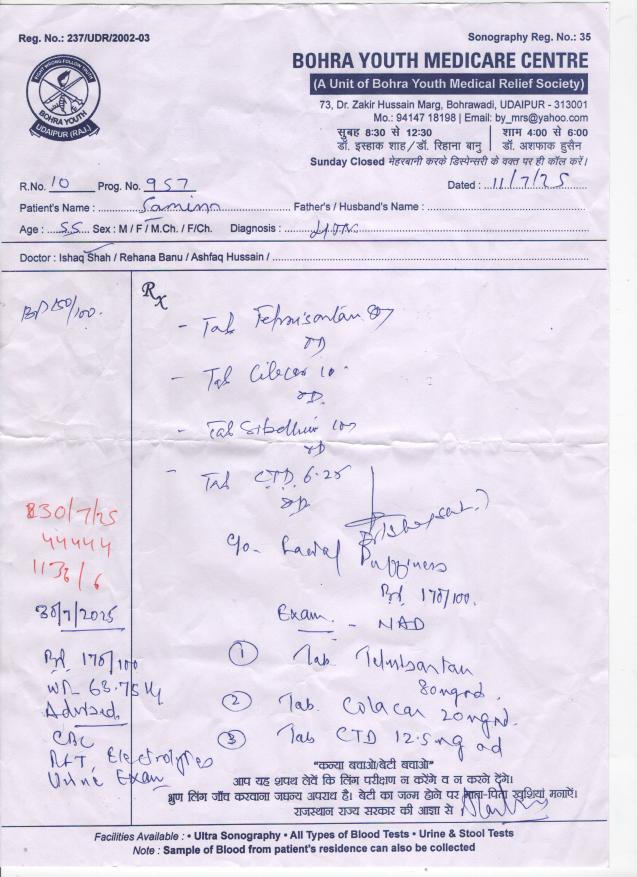 Reg. No.: 237/UDR/2002-03
Sonography Reg. No.: 35
FIGHT WRONG FOLLOW TRUTH
BOHRA YOUTH
UDAIPUR (RAJ.)
BOHRA YOUTH MEDICARE CENTRE
(A Unit of Bohra Youth Medical Relief Society)
73, Dr. Zakir Hussain Marg, Bohrawadi, UDAIPUR - 313001
Mo.: 94147 18198 | Email: by_mrs@yahoo.com
सुबह 8:30 से 12:30 | शाम 4:00 से 6:00
डॉ. इस्हाक शाह/डॉ. रिहाना बानु | डॉ. अशफाक हुसैन
Sunday Closed मेहरबानी करके डिस्पेन्सरी के वक्त पर ही कॉल करें।
R.No. 10 Prog. No. 957 Dated : 11/7/25
Patient's Name : Samina Father's / Husband's Name :
Age : 55 Sex : M / F / M.Ch. / F/Ch. Diagnosis :
Doctor : Ishaq Shah / Rehana Banu / Ashfaq Hussain /
Rx
BP 150/100.
- Tab Telmisartan 80
OD
- Tab Cilacar 10
OD
- Tab 10
OD
- Tab CTD 6.25
OD
30/7/25
44444
1136/6
c/o
Puffiness
BP 170/100.
30/7/2025
Exam. - NAD
BP 170/100
Wt- 63.75 Kg
Advised
CBC
RFT, Electrolytes
Urine Exam
① Tab. Telmisartan
80mg od.
② Tab. Colacar 20mg od.
③ Tab CTD 12.5mg od
"कन्या बचाओ/बेटी बचाओ"
आप यह शपथ लेवें कि लिंग परीक्षण न करेंगे व न करने देंगे।
भ्रुण लिंग जाँच करवाना जघन्य अपराध है। बेटी का जन्म होने पर माता-पिता खुशियां मनाऐं।
राजस्थान राज्य सरकार की आज्ञा से
Facilities Available : • Ultra Sonography • All Types of Blood Tests • Urine & Stool Tests
Note : Sample of Blood from patient's residence can also be collected